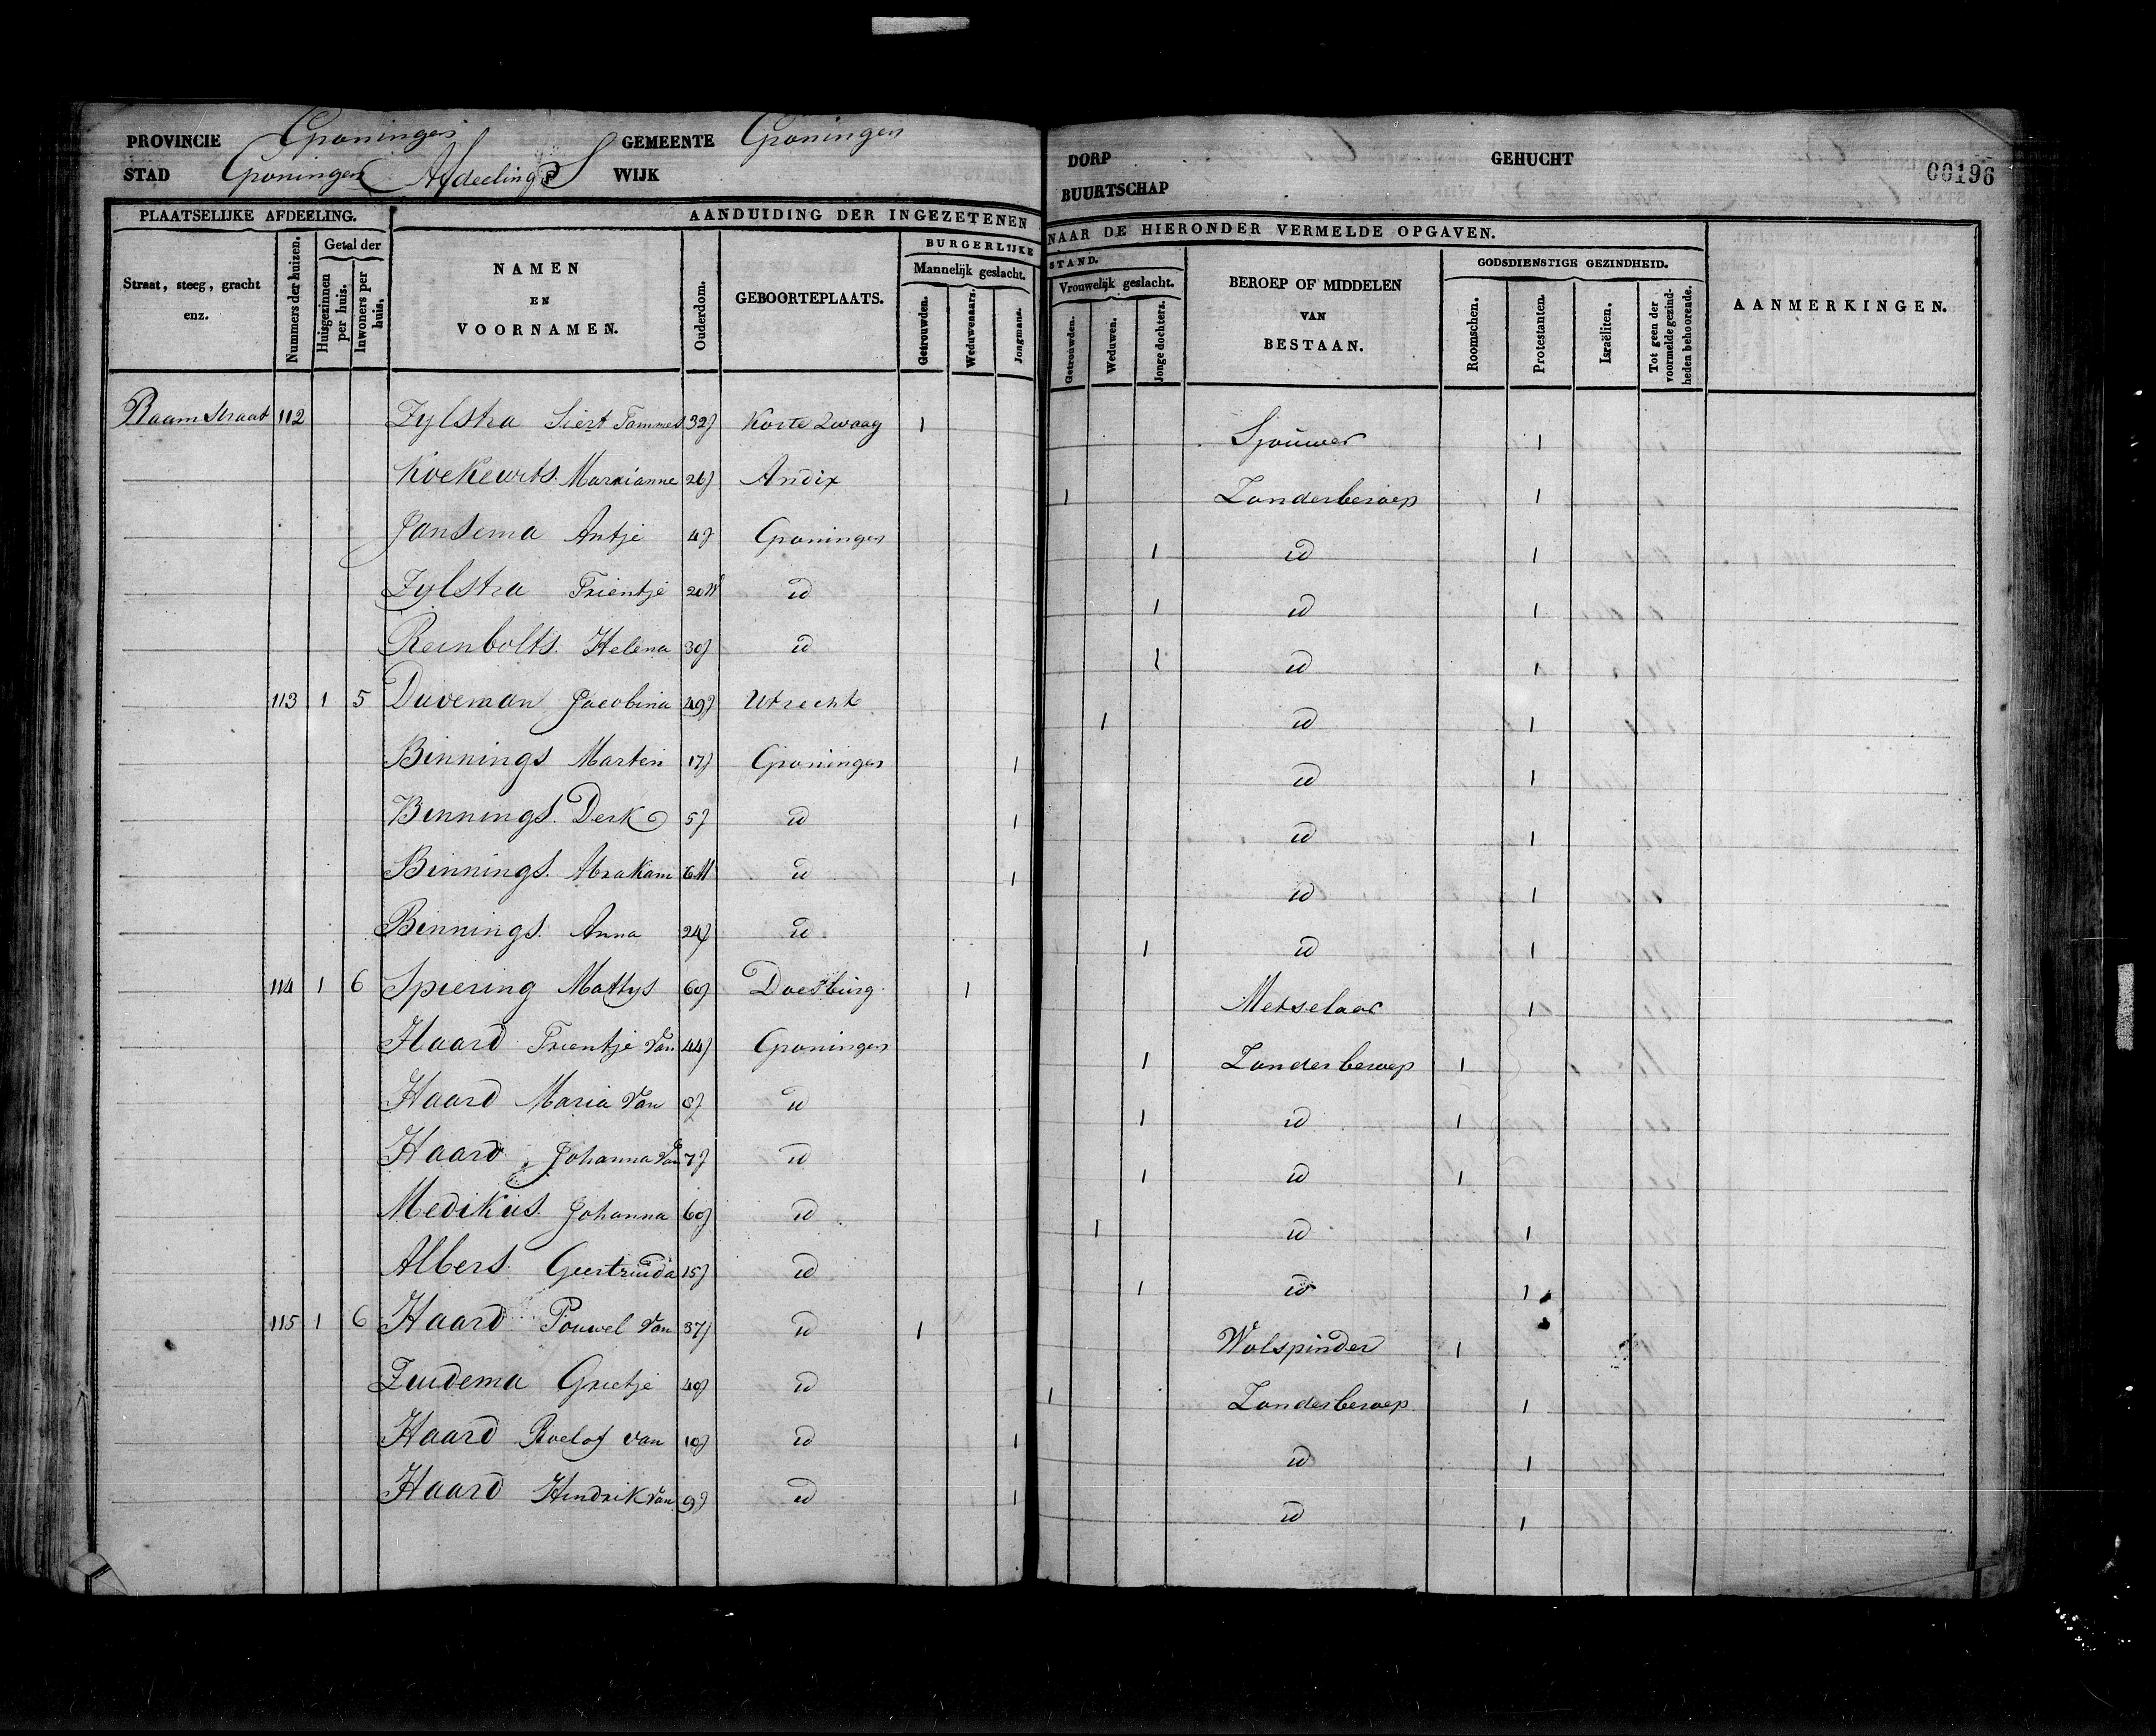 PROVINCIE Groningen GEMEENTE Groningen DORP GEHUCHT 00196
STAD Groningen Afdeeling S WIJK BUURTSCHAP
PLAATSELIJKE AFDEELING. AANDUIDING DER INGEZETENEN NAAR DE HIERONDER VERMELDE OPGAVEN.
Straat, steeg, gracht enz. Nummers der huizen. Getal der Huisgezinnen per huis. Inwoners per huis. NAMEN EN VOORNAMEN. Ouderdom. GEBOORTEPLAATS. BURGERLIJKE STAND. Mannelijk geslacht. Getrouwden. Weduwenaars. Jongmans. Vrouwelijk geslacht. Getrouwden. Weduwen. Jonge dochters. BEROEP OF MIDDELEN VAN BESTAAN. GODSDIENSTIGE GEZINDHEID. Roomschen. Protestanten. Israëliten. Tot geen der voormelde gezindheden behoorende. AANMERKINGEN.
Raamstraat 112 Zylstra Siert Tammes 32j Korte Zwaag 1 Sjouwer 1
Marxianne 26j Andix 1 Zonderberoep 1
Jansema Antje 4j Groningen 1 id 1
Zylstra Trientje 20W id 1 id 1
Reinbolts Helena 30j id 1 id 1
113 1 5 Duveman Jacobina 49j Utrecht 1 id 1
Binnings Marten 17j Groningen 1 id 1
Binnings Derk 5j id 1 id 1
Binnings Abraham 6M id 1 id 1
Binnings Anna 24j id 1 id 1
114 1 6 Spiering Mattys 60j Doesburg 1 Metselaar 1
Haard Trientje Van 44j Groningen 1 Zonderberoep 1
Haard Maria Van 8j id 1 id 1
Haard Johanna Van 7j id 1 id 1
Medikus Johanna 60j id 1 id 1
Albers Geertruida 15j id 1 id 1
115 1 6 Haard Pouwel Van 37j id 1 Wolspinder 1
Zuidema Grietje 40j id 1 Zonderberoep 1
Haard Roelof van 10j id 1 id 1
Haard Hindrik Van 9j id 1 id 1